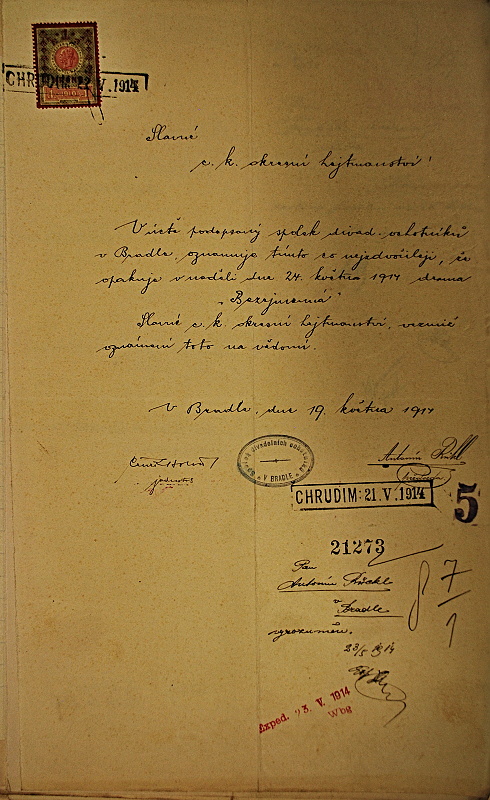 1
CHRUDIM 22. V. 1914
1 1910
Slavné
c. k. okresní hejtmanství!
V úctě podepsaný spolek divad. ochotníků
v Bradle, oznamuje tímto co nejzdvořileji, že
opakuje v neděli dne 24. května 1914 drama
„Bezejmenná"
Slavné c. k. okresní hejtmanství, vezmiž
oznámení toto na vědomí.
V Bradle, dne 19. května 1914
Antonín
jednatel
divadelních ochotníků
V BRADLE
CHRUDIM: 21. V. 1914
5
21273
Pan
Antonín
v Bradle
vyrozuměn.
23/5 1914
8 7/1
Exped. 23. V. 1914
Wbg